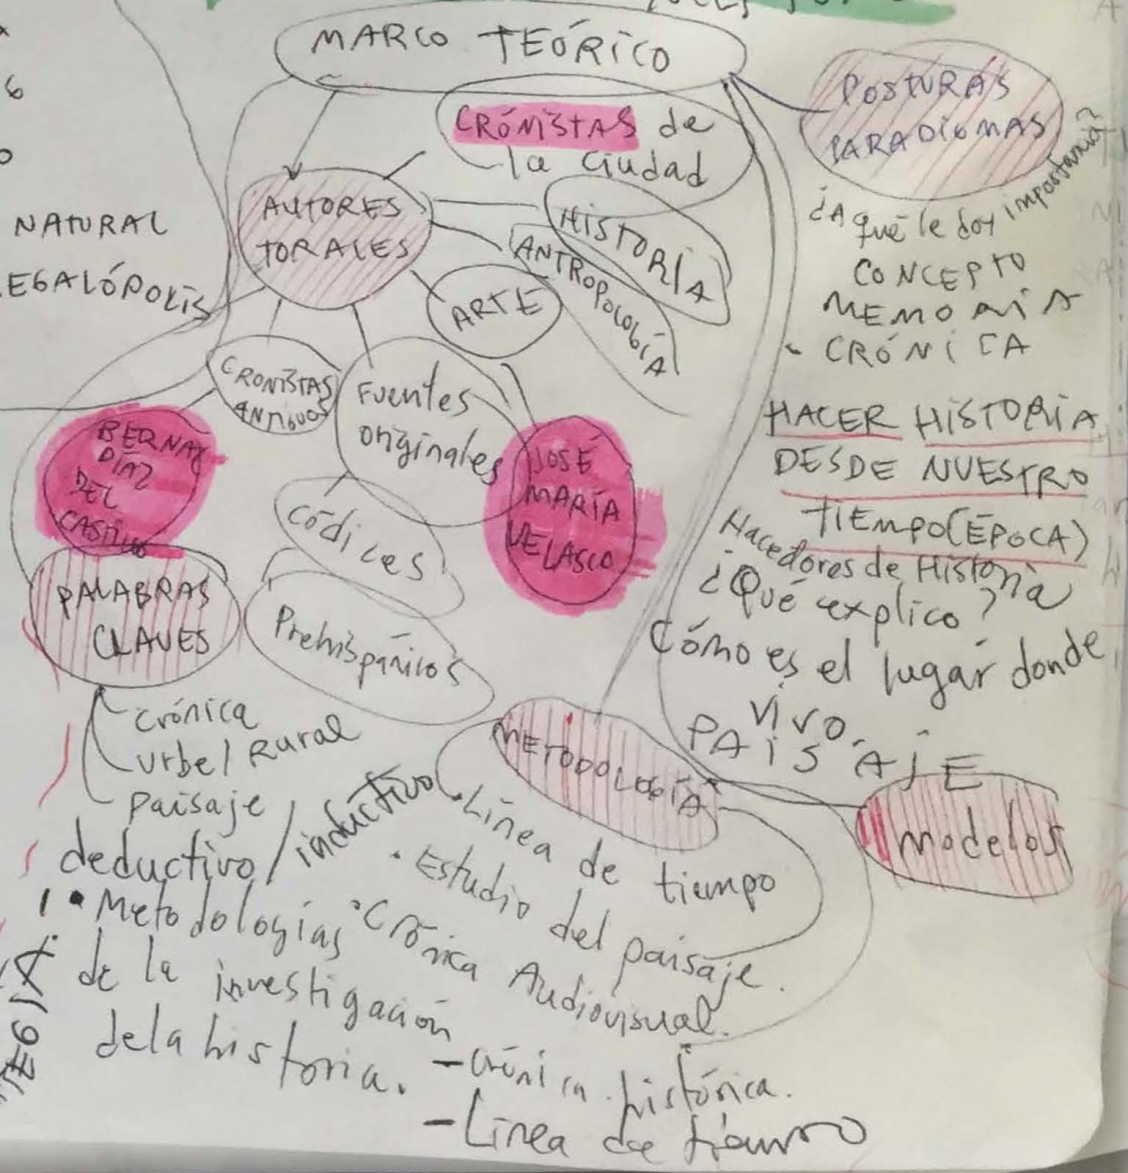 MARCO TEÓRICO
CRÓNISTAS de
la Ciudad
POSTURAS
PARADIGMAS
¿A qué le doy importancia?
CONCEPTO
MEMORIA
- CRÓNICA
AUTORES
TORALES
HISTORÍA
ANTROPOLOGÍA
ARTE
NATURAL
EGALÓPOLIS
CRONISTAS
ANTIGUOS
Fuentes
originales
BERNAL
DIAZ
DEL
CASTILLO
JOSÉ
MARÍA
VELASCO
Códices
Prehispánicos
HACER HISTORIA
DESDE NUESTRO
TIEMPO (ÉPOCA)
Hacedores de Historia
¿Qué explico?
Cómo es el lugar donde
vivo.
PAISAJE
PALABRAS
CLAVES
Crónica
Urbe/Rural
paisaje
METODOLOGÍA
modelos
deductivo/inductivo
• Línea de tiempo
• Estudio del paisaje.
• Crónica Audiovisual.
• Metodologías
de la investigación
de la historia.
- Crónica histórica.
- Línea de tiempo